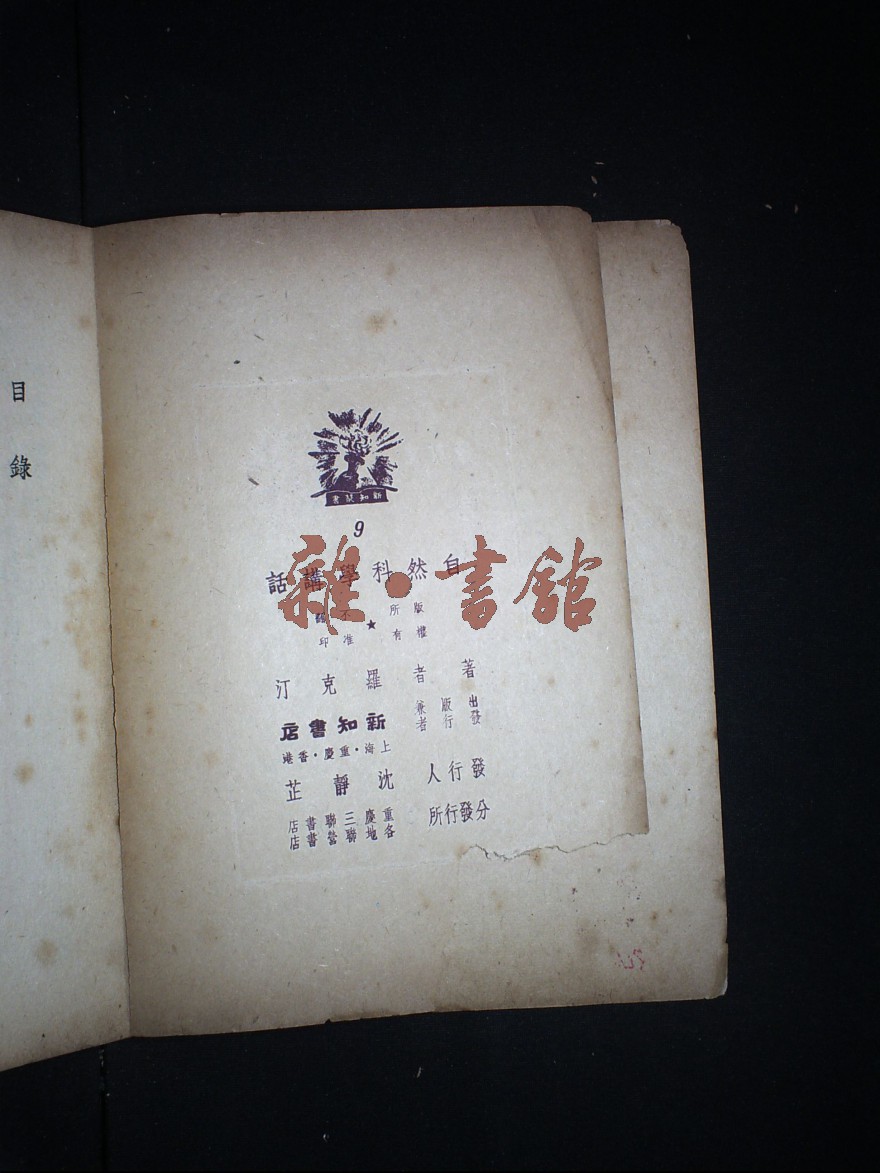 新知叢書
9
自然科學講話
版權所有★不准翻印
著者 羅克汀
出版兼
發行者
新知書店
上海・重慶・香港
發行人 沈靜芷
分發行所 重慶三聯書店
各地聯營書店
目錄
雜・書館